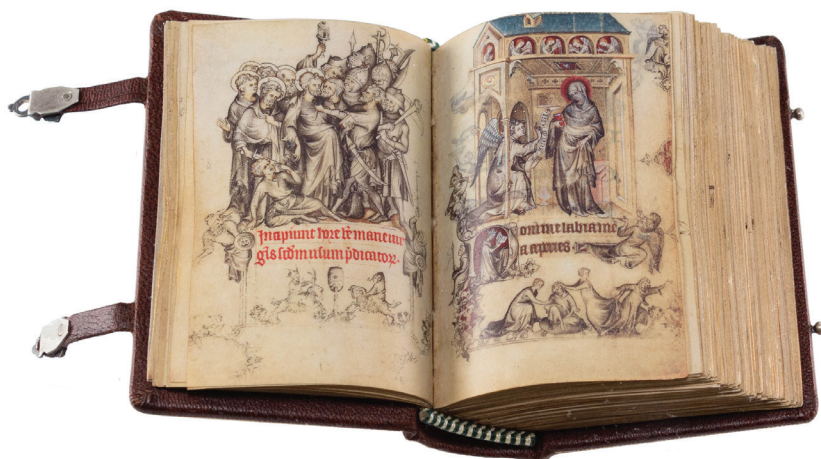 Incipiunt hore bē marie uir
gīs scdm usum p̄dicator.
Domine labia me
a aperies.